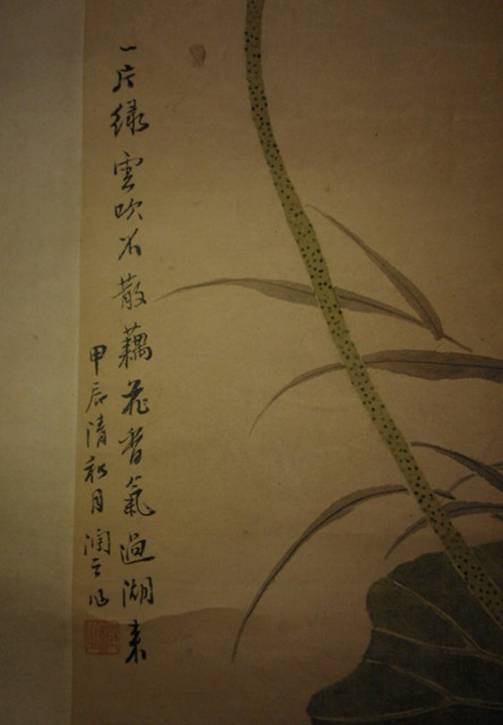 一片绿雲吹不散藕花香氣過湖來
甲辰清秋月潤之作